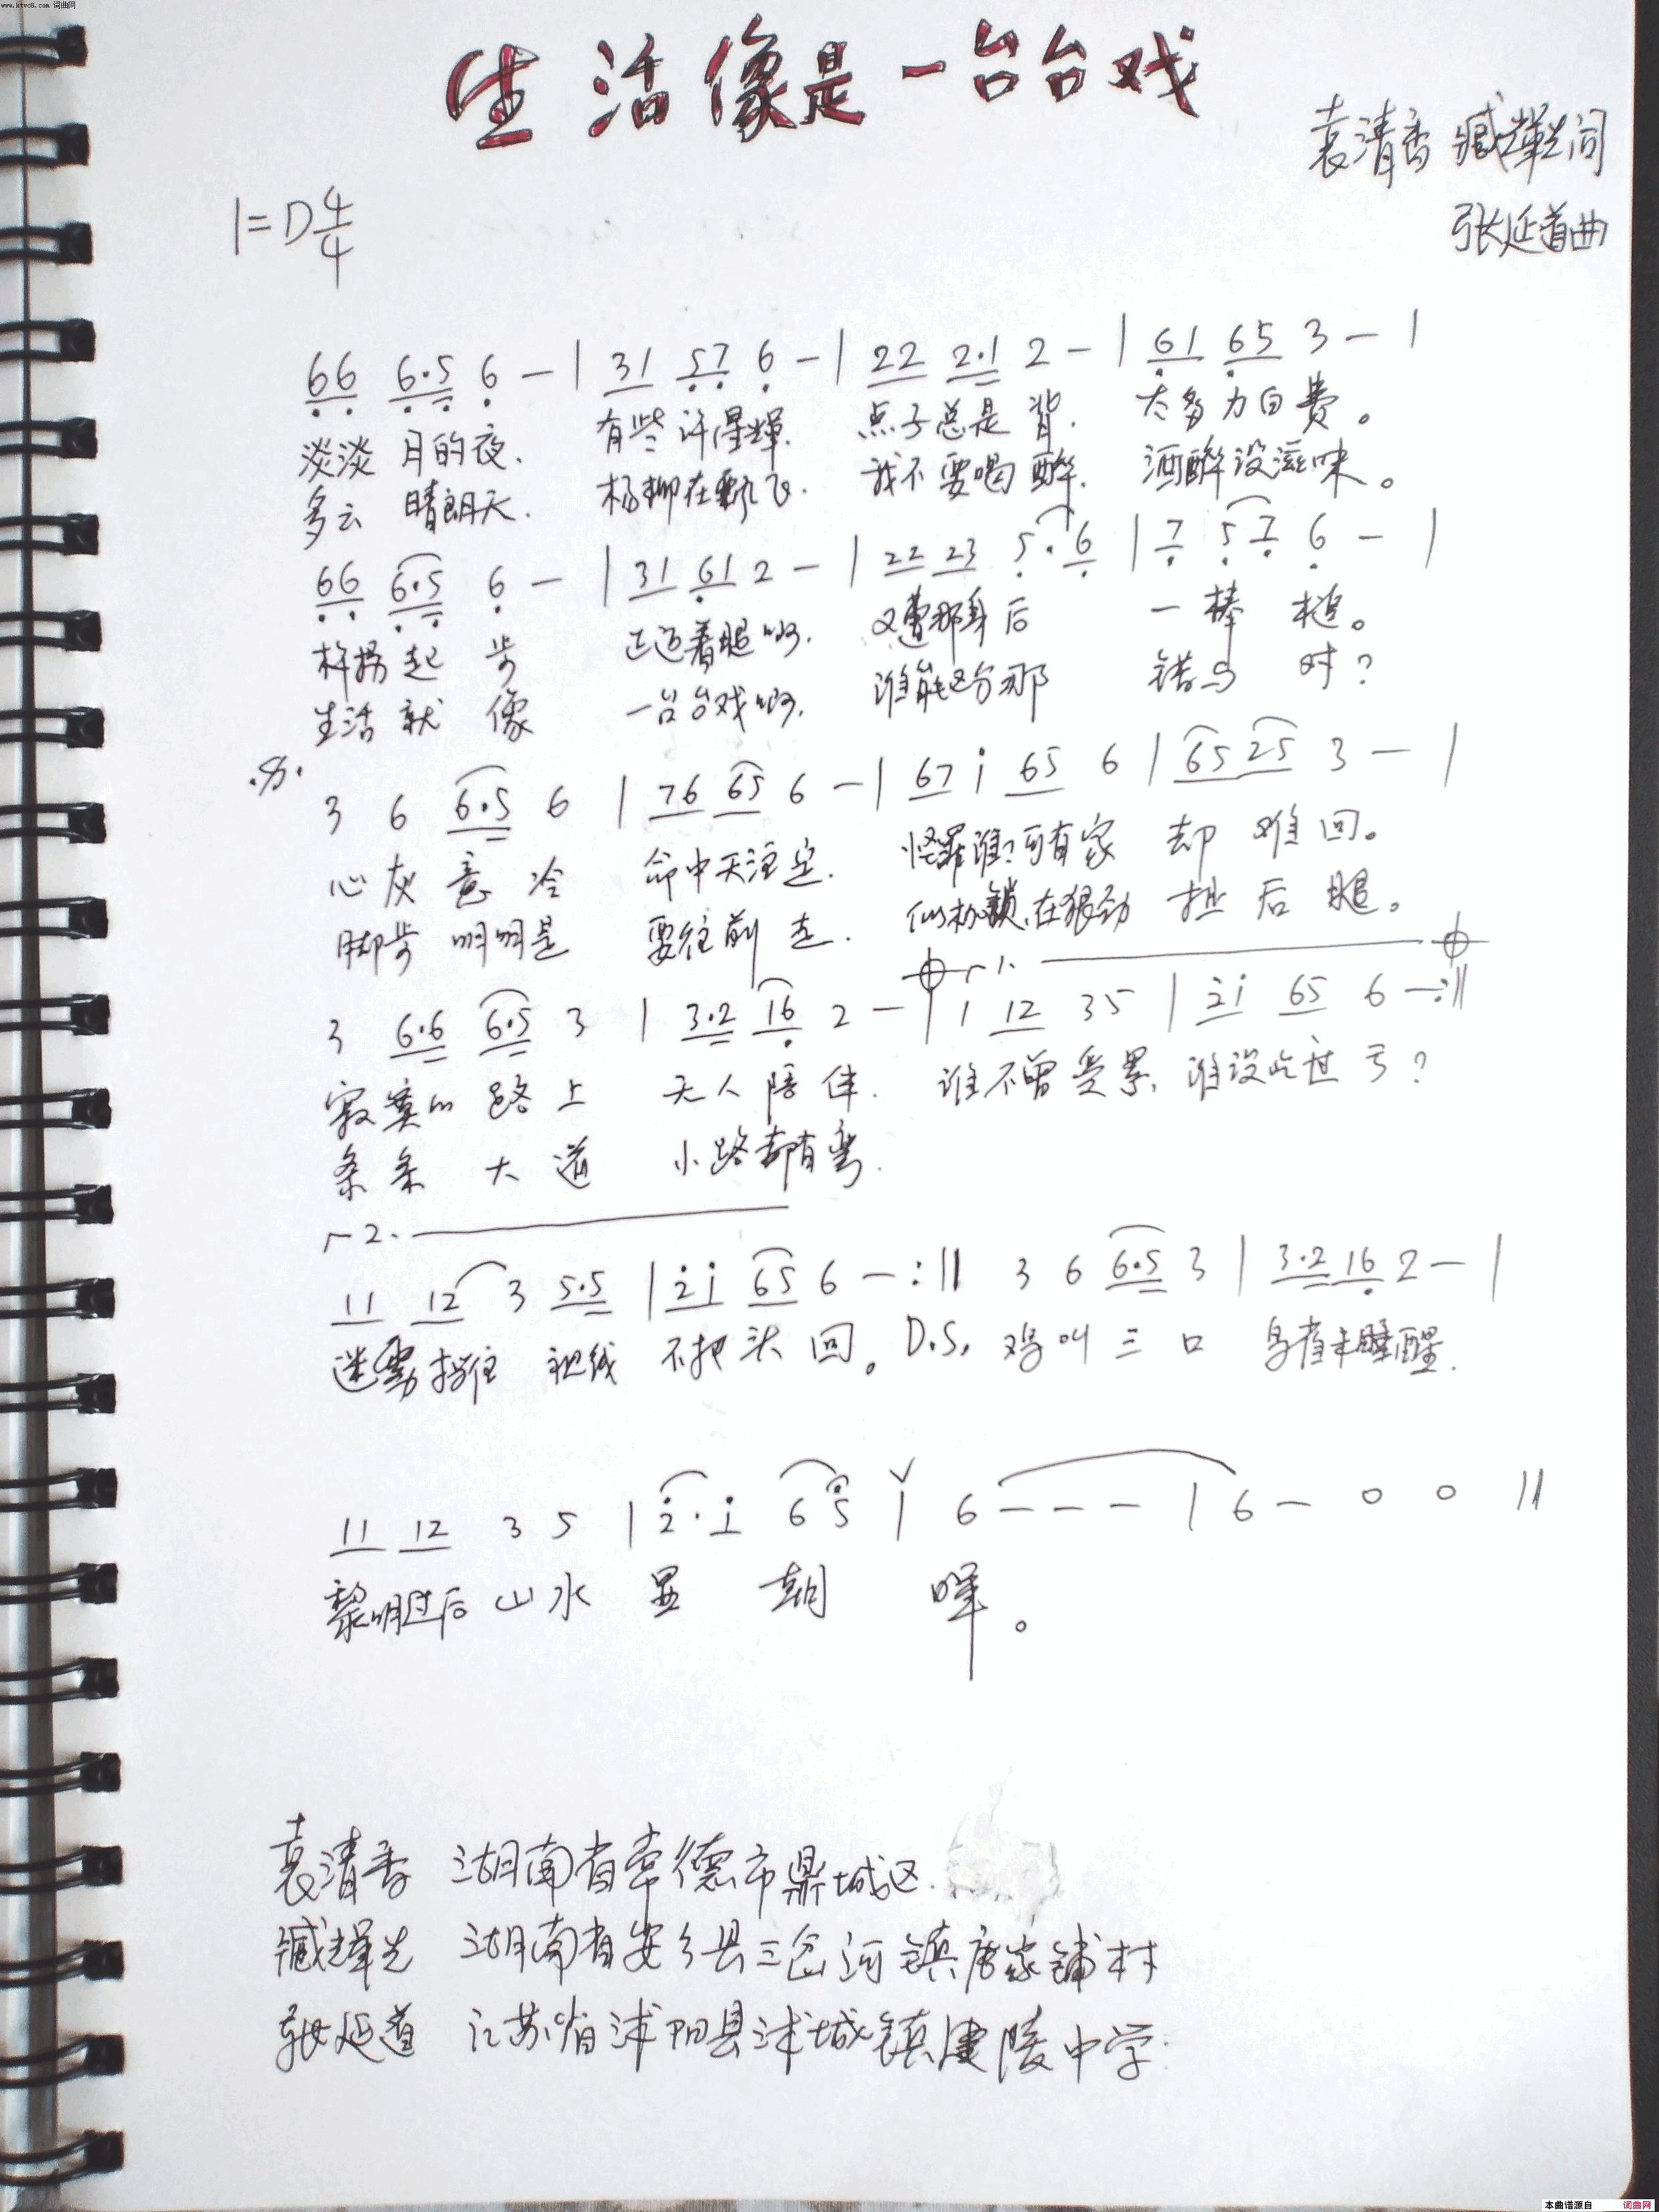 www.ktvc8.com 词曲网
生活像是一台台戏
袁清香 臧辉先词
1=D 4/4
张延道曲
66 6·5 6 - | 31 57 6 - | 22 2·1 2 - | 61 65 3 - |
淡淡 月的夜. 有些许星辉. 点子总是背. 大多力白费。
多云 晴朗天. 杨柳在飘飞. 我不要喝醉. 酒醉没滋味。
66 6·5 6 - | 31 61 2 - | 22 23 5·6 | 7 57 6 - |
拐起 步 着腿啊. 又遭那身后 一棒 槌。
生活就 像 一台台戏啊. 谁能区分那 错与 对?
3 6 6·5 6 | 76 65 6 - | 67 i 65 6 | 65 25 3 - |
心灰意冷 命中天注定. 怪罪谁?可有家 却难回。
脚步明明是 要往前走. 似枷锁在狠劲 拽后腿。
1.
3 6·6 6·5 3 | 3·2 16 2 - | 1 12 35 | 2i 65 6 - :||
寂寞的路上 无人陪伴. 谁不曾受累, 谁没吃过亏?
条条大道 小路都有弯.
2.
11 12 3 5·5 | 2i 65 6 - :|| 3 6 6·5 3 | 3·2 16 2 - |
迷雾挡住 视线 不把头回。 D.S. 鸡叫三口 鸟雀未睡醒.
11 12 3 5 | 2·i 6 5 | 6 - - - | 6 - 0 0 ||
黎明过后山水 显 朝 晖。
袁清香 湖南省常德市鼎城区.
臧辉先 湖南省安乡县三岔河镇唐家铺村
张延道 江苏省沭阳县沭城镇建陵中学
本曲谱源自 词曲网